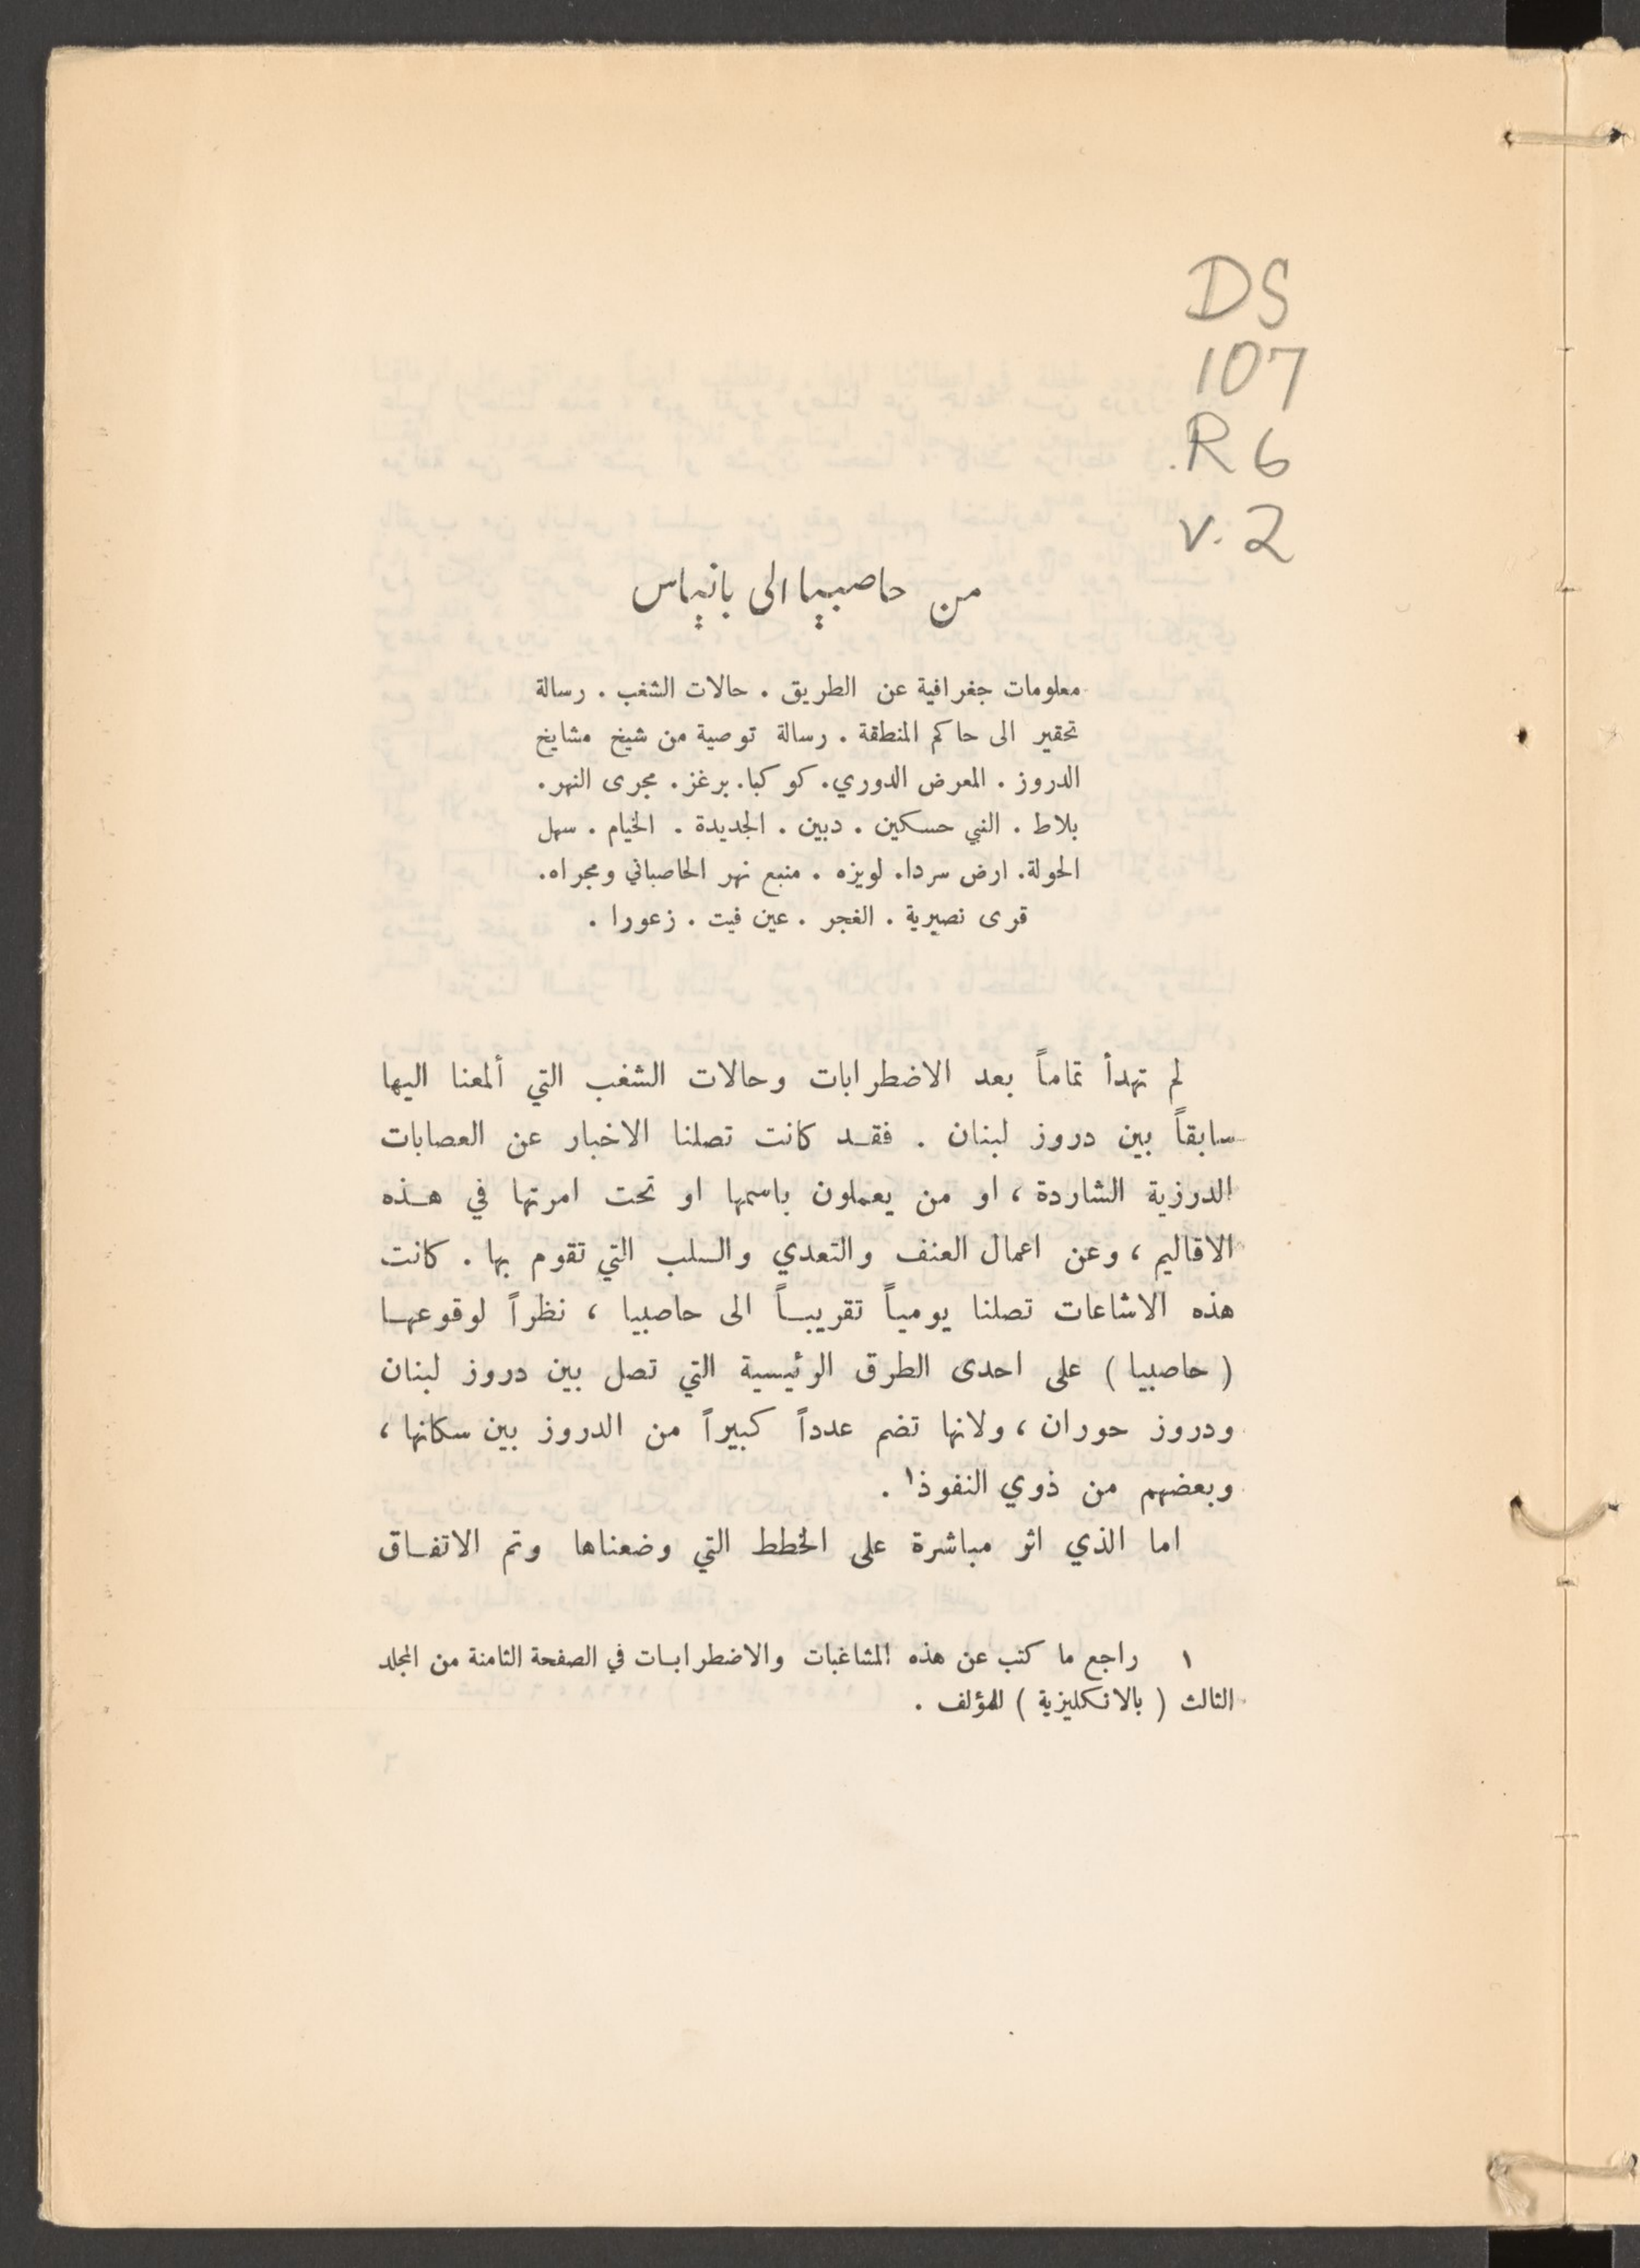 DS
107
.R6
v.2
من حاصبيا الى بانياس
معلومات جغرافية عن الطريق . حالات الشغب . رسالة
تحقير الى حاكم المنطقة . رسالة توصية من شيخ مشايخ
الدروز . المعرض الدوري . كوكبا . برغز . مجرى النهر .
بلاط . النبي حسكين . دبين . الجديدة . الخيام . سهل
الحولة . ارض سردا . لويزه . منبع نهر الحاصباني ومجراه .
قرى نصيرية . الغجر . عين فيت . زعورا .
لم تهدأ تماماً بعد الاضطرابات وحالات الشغب التي ألمعنا اليها
سابقاً بين دروز لبنان . فقد كانت تصلنا الاخبار عن العصابات
الدرزية الشاردة ، او من يعملون باسمها او تحت امرتها في هذه
الاقاليم ، وعن اعمال العنف والتعدي والسلب التي تقوم بها . كانت
هذه الاشاعات تصلنا يومياً تقريباً الى حاصبيا ، نظراً لوقوعها
( حاصبيا ) على احدى الطرق الرئيسية التي تصل بين دروز لبنان
ودروز حوران ، ولانها تضم عدداً كبيراً من الدروز بين سكانها ،
وبعضهم من ذوي النفوذ١ .
اما الذي اثر مباشرة على الخطط التي وضعناها وتم الاتفاق
١ راجع ما كتب عن هذه المشاغبات والاضطرابات في الصفحة الثامنة من المجلد
الثالث ( بالانكليزية ) للمؤلف .